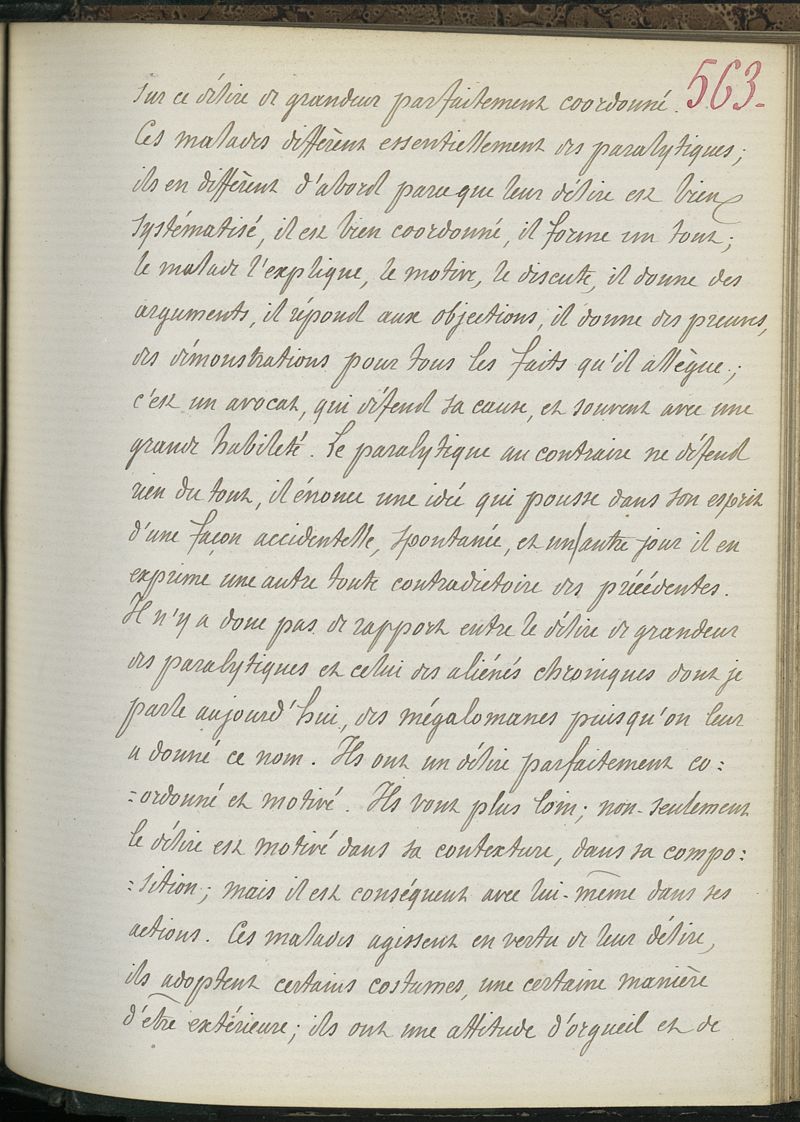 563.
sur ce délire de grandeur parfaitement coordonné.
Ces malades diffèrent essentiellement des paralytiques;
ils en diffèrent d'abord parce que leur délire est bien
systématisé, il est bien coordonné, il forme un tout;
le malade l'explique, le motive, le discute, il donne des
arguments, il répond aux objections, il donne des preuves,
des démonstrations pour tous les faits qu'il allègue;
c'est un avocat, qui défend sa cause, et souvent avec une
grande habileté. Le paralytique au contraire ne défend
rien du tout, il énonce une idée qui pousse dans son esprit
d'une façon accidentelle, spontanée, et un autre jour il en
exprime une autre toute contradictoire des précédentes.
Il n'y a donc pas de rapport entre le délire de grandeur
des paralytiques et celui des aliénés chroniques dont je
parle aujourd'hui, des mégalomanes puisqu'on leur
a donné ce nom. Ils ont un délire parfaitement co=
=ordonné et motivé. Ils vont plus loin; non-seulement
le délire est motivé dans sa contexture, dans sa compo=
=sition; mais il est conséquent avec lui-même dans ses
actions. Ces malades agissent en vertu de leur délire,
ils adoptent certains costumes, une certaine manière
d'être extérieure; ils ont une attitude d'orgueil et de